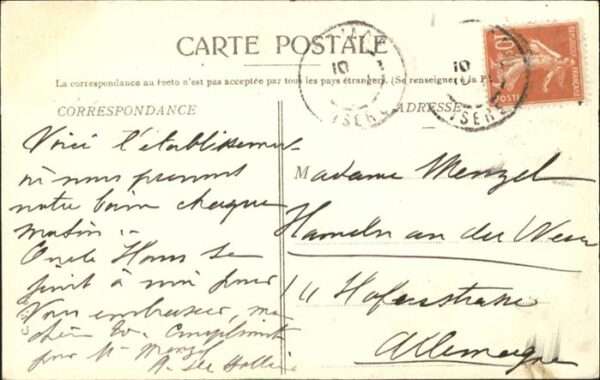 CARTE POSTALE
La correspondance au recto n'est pas acceptée par tous les pays étrangers. (Se renseigner à la P
CORRESPONDANCE
ADRESSE
Voici l'établissement
où nous prenons
notre bain chaque
matin :-
Oncle Hans se
joint à moi pour
Vous embrasser, ma
chère Compliments
pour Mr Menzel
Madame Menzel
Hameln an der Weser
Allemagne
ISERE
10
ISERE
10
10
POSTES